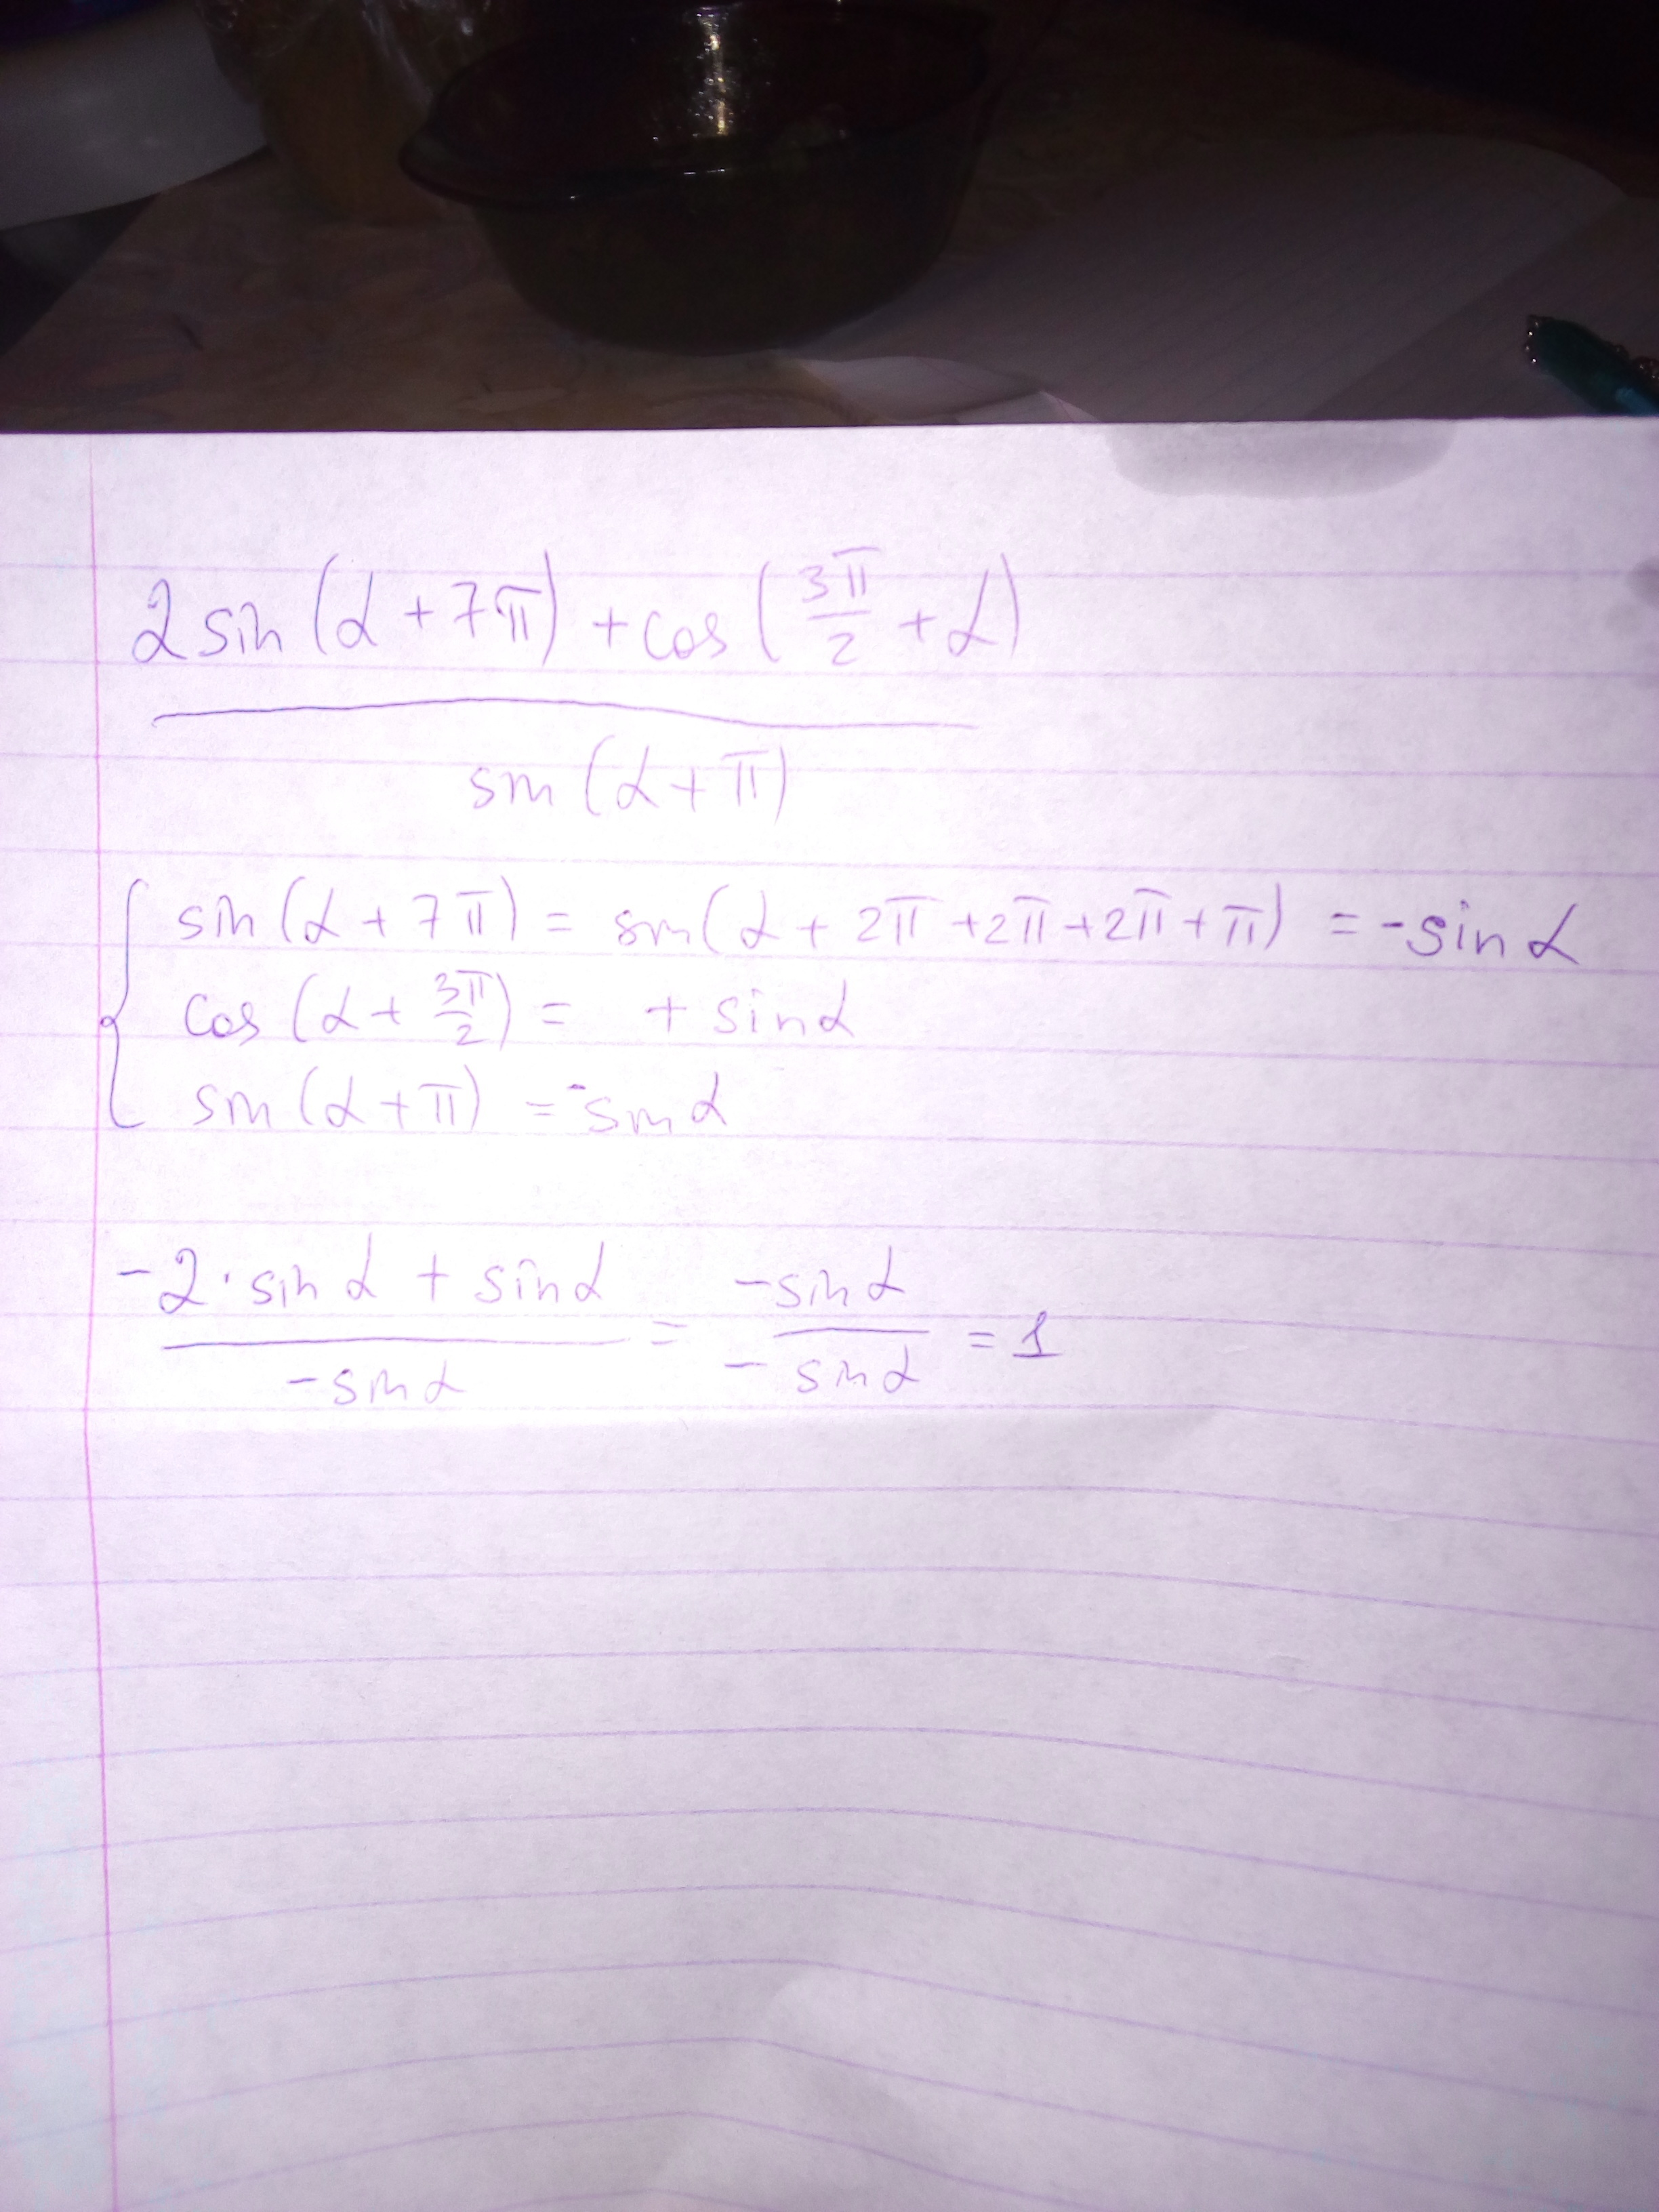 2 sin (α + 7π) + cos (3π/2 + α)
sin (α + π)
sin (α + 7π) = sin (α + 2π + 2π + 2π + π) = - sin α
cos (α + 3π/2) = + sin α
sin (α + π) = - sin α
-2 · sin α + sin α / - sin α = - sin α / - sin α = 1